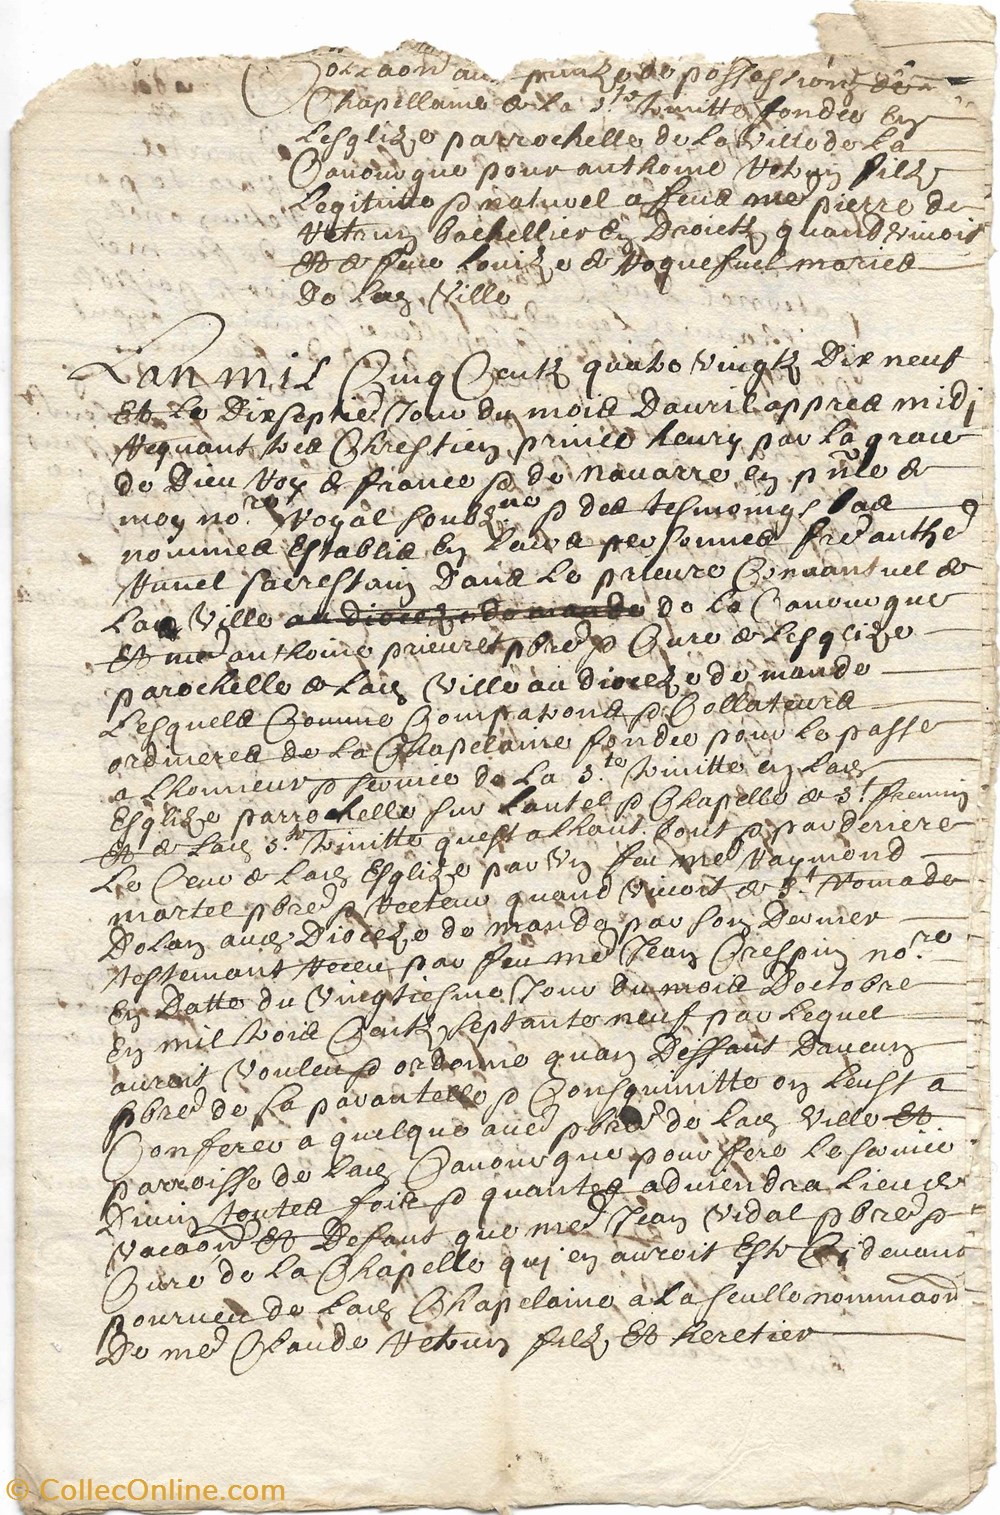 Collaon avec prinze de possession de
Chapellaine de La Ste trinitte fondee en
Lesglize parrochelle de La Ville de La
Canourgue pour anthoine Retrun filz
Legitime & naturel a feus me pierre de
Retrun bachellier en Droictz quand vivoit
et de feue Louize de Roquefueil mariés
de lad Ville
Lan mil Cinq Centz quatre vingtz Dix neuf
et Le Dixseptie Jour du mois Dauril appres midj
Regnant tres Chrestien prince henry par La grace
de Dieu Roy de france & de navarre en pnce de
moy nore Royal soubzne & des tesmoings bas
nommes establis en leurs personnes fre anthe
Runel sacrestain Dans Le prieure Conuantuel de
Lad Ville au dioceze de mande de La Canourgue
Et me anthoine prieuret pbre & Cure de Lesglize
parochelle de Lad Ville au dioceze de mande
Lesquels Comme Compatrons & Collateurs
ordineres de La Chapelaine fondee pour Le passe
a Lhonneur & service de La Ste trinitte en lad
Esglize parrochelle sur Lautel & Chapelle de St fremin
et de Lad Ste trinitte quest alhaut bout & par derriere
Le Ceur de Lad Esglize par un feu me Raymond
martel pbre & Recteur quand vivoit de St Romade
Dolan aud Dioceze de mande par son Dernier
testemant Receu par feu me Jean Crespin nore
En Datte du vingtiesme Jour du mois Doctobre
En mil trois Centz septante neuf par Lequel
auroit Vouleu & ordonne quan Deffaut Daucun
pbre de sa parantelle & Consquinitte on Leust a
Conferer a quelque aue pbre de Lad Ville et
parroisse de Lad Canourgue pour fere Le service
Divin toutes fois & quantes adviendra Lieu de
vacaon et Defaut que me Jean Vidal pbre &
Cure de La Chapelle quj en auroit Este Cj devant
pourveu de Lad Chapelaine a La seulle nominaon
De me Claude Retrun filz et heretier
© CollecOnline.com